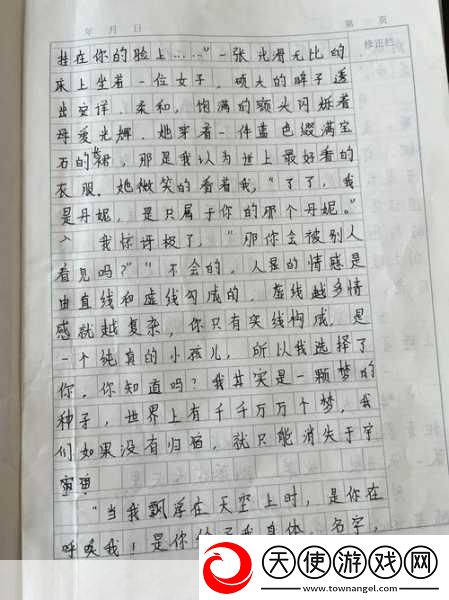 年 月 日 第 页
修正栏
挂在你的脸上……”一张光滑无比的
床上坐着一位女子，硕大的眸子透
出安详、柔和，饱满的额头闪烁着
母爱光辉．她穿着一件蓝色缀满宝
石的裙，那是我认为世上最好看的
衣服。她微笑的看着我，“了了，我
是丹妮，是只属于你的那个丹妮。”
我惊讶极了，“那你会被别人
看见吗？”“不会的．人显的情感是
由直线和虚线勾成的．虚线越多情
感就越复杂，你只有实线构成．是
一个纯真的小孩儿，所以我选择了
你．你知道吗？我其实是一颗梦的
种子，世界上有千千万万个梦，我
们如果没有归宿，就只能消失于宇
宙
“当我飘浮在天空上时，是你在
呼唤我！是你给予我身体、名字，
天使游戏网
www.townangel.com